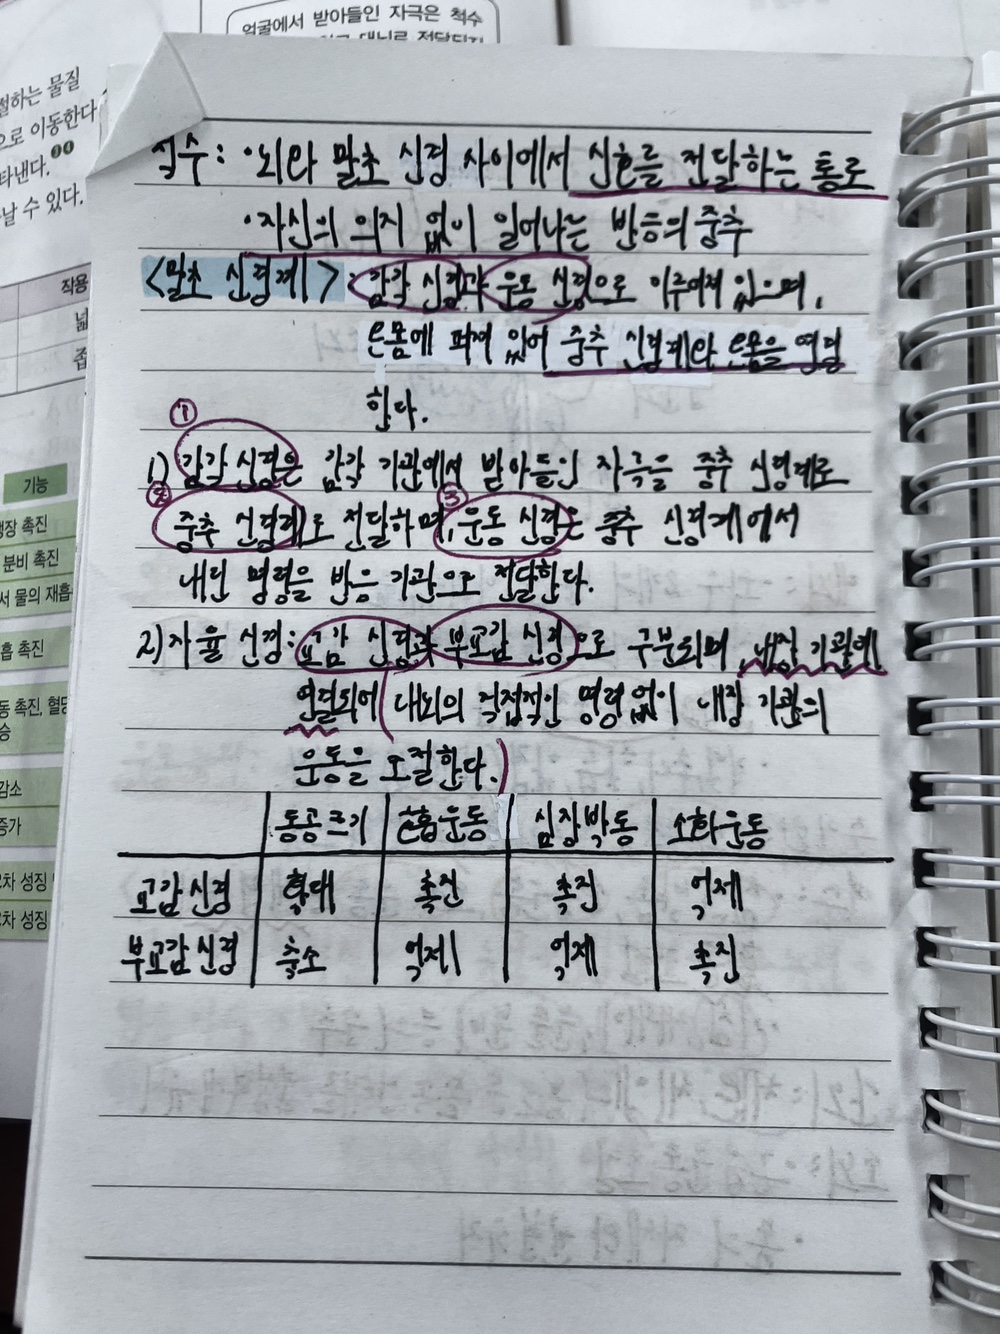 얼굴에서 받아들인 자극은 척수
절하는 물질
으로 이동한다
타낸다.
날 수 있다.
작용
기능
촉진
분비 촉진
서 물의 재흡
흡 촉진
동 촉진, 혈당
승
감소
증가
2차 성징
2차 성징
척수: ·뇌와 말초 신경 사이에서 신호를 전달하는 통로
·자신의 의지 없이 일어나는 반응의 중추
<말초 신경계> ·감각 신경과 운동 신경으로 이루어져 있으며,
온몸에 퍼져 있어 중추 신경계와 온몸을 연결
한다.
①
1) 감각 신경은 감각 기관에서 받아들인 자극을 중추 신경계로
② ③
중추 신경계로 전달하며, 운동 신경은 중추 신경계에서
내린 명령을 반응 기관으로 전달한다.
2) 자율 신경: 교감 신경과 부교감 신경으로 구분되며, 내장 기관에
연결되어 대뇌의 직접적인 명령 없이 내장 기관의
운동을 조절한다.
동공크기 호흡운동 심장박동 소화운동
교감신경 확대 촉진 촉진 억제
부교감신경 축소 억제 억제 촉진